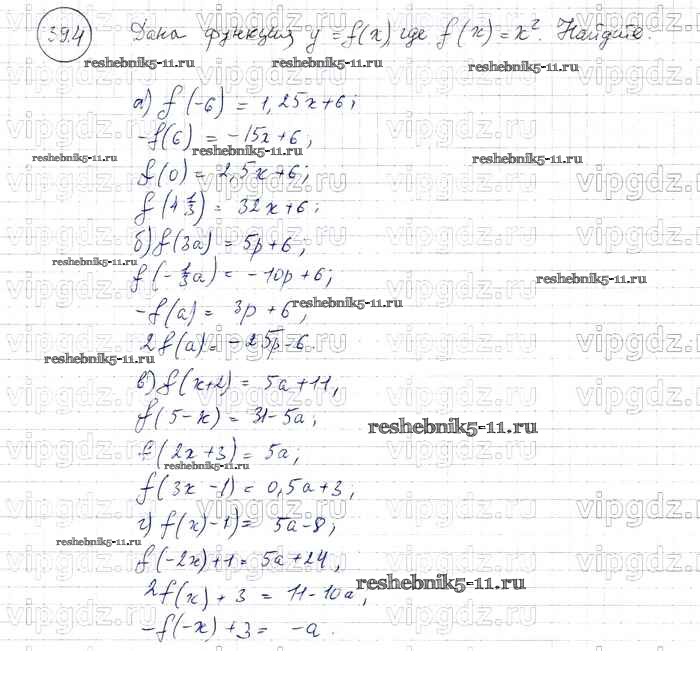 39.4 Дана функция y = f(x), где f(x) = x². Найдите:
reshebnik5-11.ru reshebnik5-11.ru
а) f(-6) = 1,25x+6;
-f(6) = -15x+6;
reshebnik5-11.ru reshebnik5-11.ru reshebnik5-11.ru
f(0) = 2,5x+6;
f(4 1/3) = 32x+6;
б) f(3a) = 5p+6;
reshebnik5-11.ru
f(-1/3a) = -10p+6; reshebnik5-11.ru
-f(a) = 3p+6; reshebnik5-11.ru
2f(a) = -25p-6.
reshebnik5-11.ru
в) f(x+2) = 5a+11,
f(5-x) = 31-5a; reshebnik5-11.ru
f(2x+3) = 5a;
reshebnik5-11.ru
f(3x-1) = 0,5a+3;
г) f(x)-1) = 5a-8;
reshebnik5-11.ru
f(-2x)+1 = 5a+24,
reshebnik5-11.ru
2f(x)+3 = 11-10a,
-f(-x)+3 = -a.
vipgdz.ru vipgdz.ru vipgdz.ru vipgdz.ru